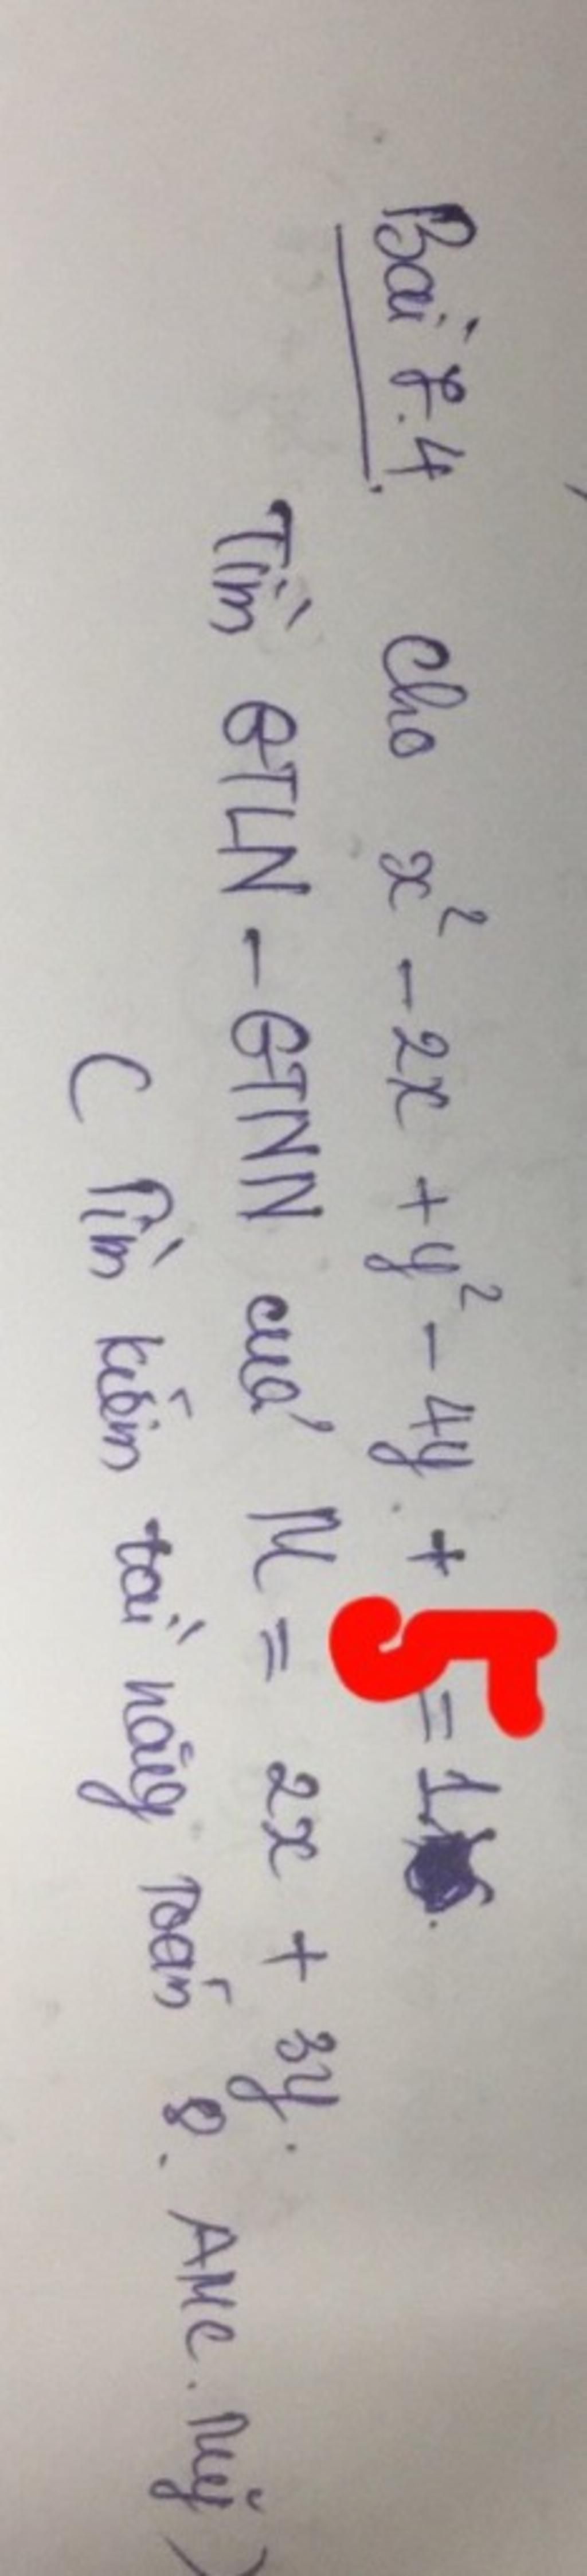 Bài 7.4 Cho x² - 2x + y² - 4y + 5 = 1.
Tìm GTLN - GTNN của M = 2x + 3y.
( Tìm kiếm tài năng Toán 8. AMC. Mỹ )